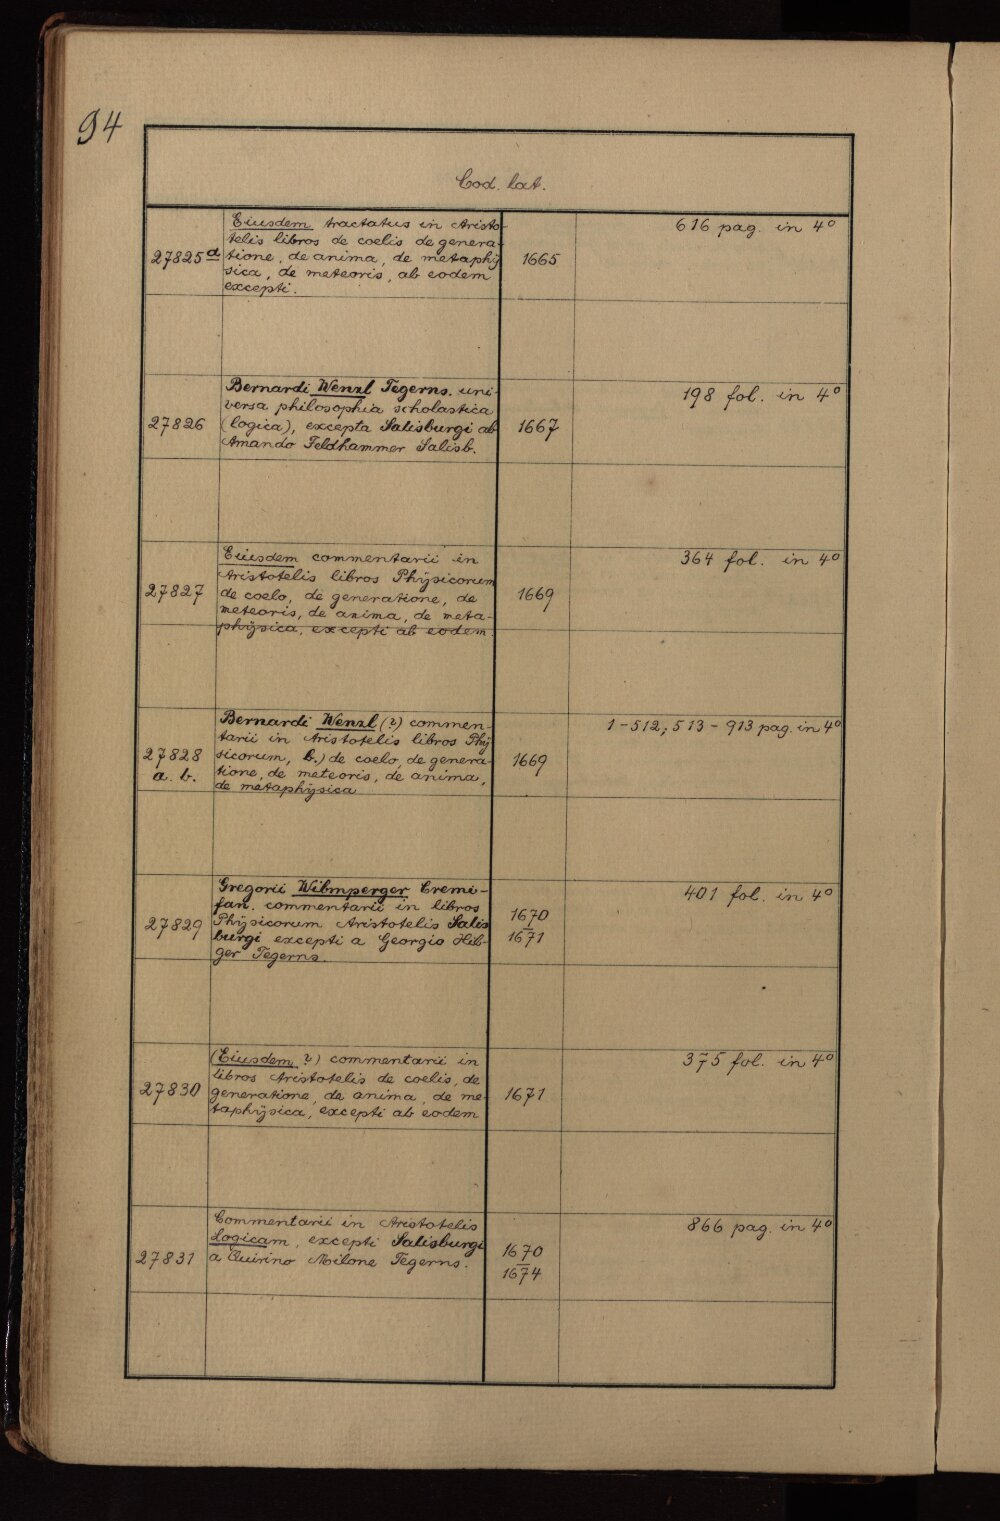 94
Cod. lat.
Eiusdem tractatus in Aristo-
telis libros de coelis de genera-
27825a tione, de anima, de metaphy 1665 616 pag. in 4º
sica, de meteoris, ab eodem
excepti.
Bernardi Wenzl Tegerns. uni-
versa philosophia scholastica
27826 (logica), excepta Salisburgi ab 1667 198 fol. in 4º
Amando Feldhammer Salisb.
Eiusdem commentarii in
Aristotelis libros Physicorum
27827 de coelo, de generatione, de 1669 364 fol. in 4º
meteoris, de anima, de meta-
physica, excepti ab eodem.
Bernardi Wenzl (?) commen-
tarii in Aristotelis libros Phy
27828 sicorum, b.) de coelo, de genera- 1669 1-512, 513-913 pag. in 4º
a. b. tione, de meteoris, de anima,
de metaphysica
Gregorii Wibmperger Cremi-
fan. commentarii in libros
27829 Physicorum Aristotelis Salis 1670 401 fol. in 4º
burgi excepti a Georgio Hib- 1671
ger Tegerns.
(Eiusdem ?) commentarii in
libros Aristotelis de coelis, de
27830 generatione, de anima, de me 1671 375 fol. in 4º
taphysica, excepti ab eodem
Commentarii in Aristotelis
Logicam, excepti Salisburgi 1670 866 pag. in 4º
27831 a Quirino Milone Tegerns. 1674